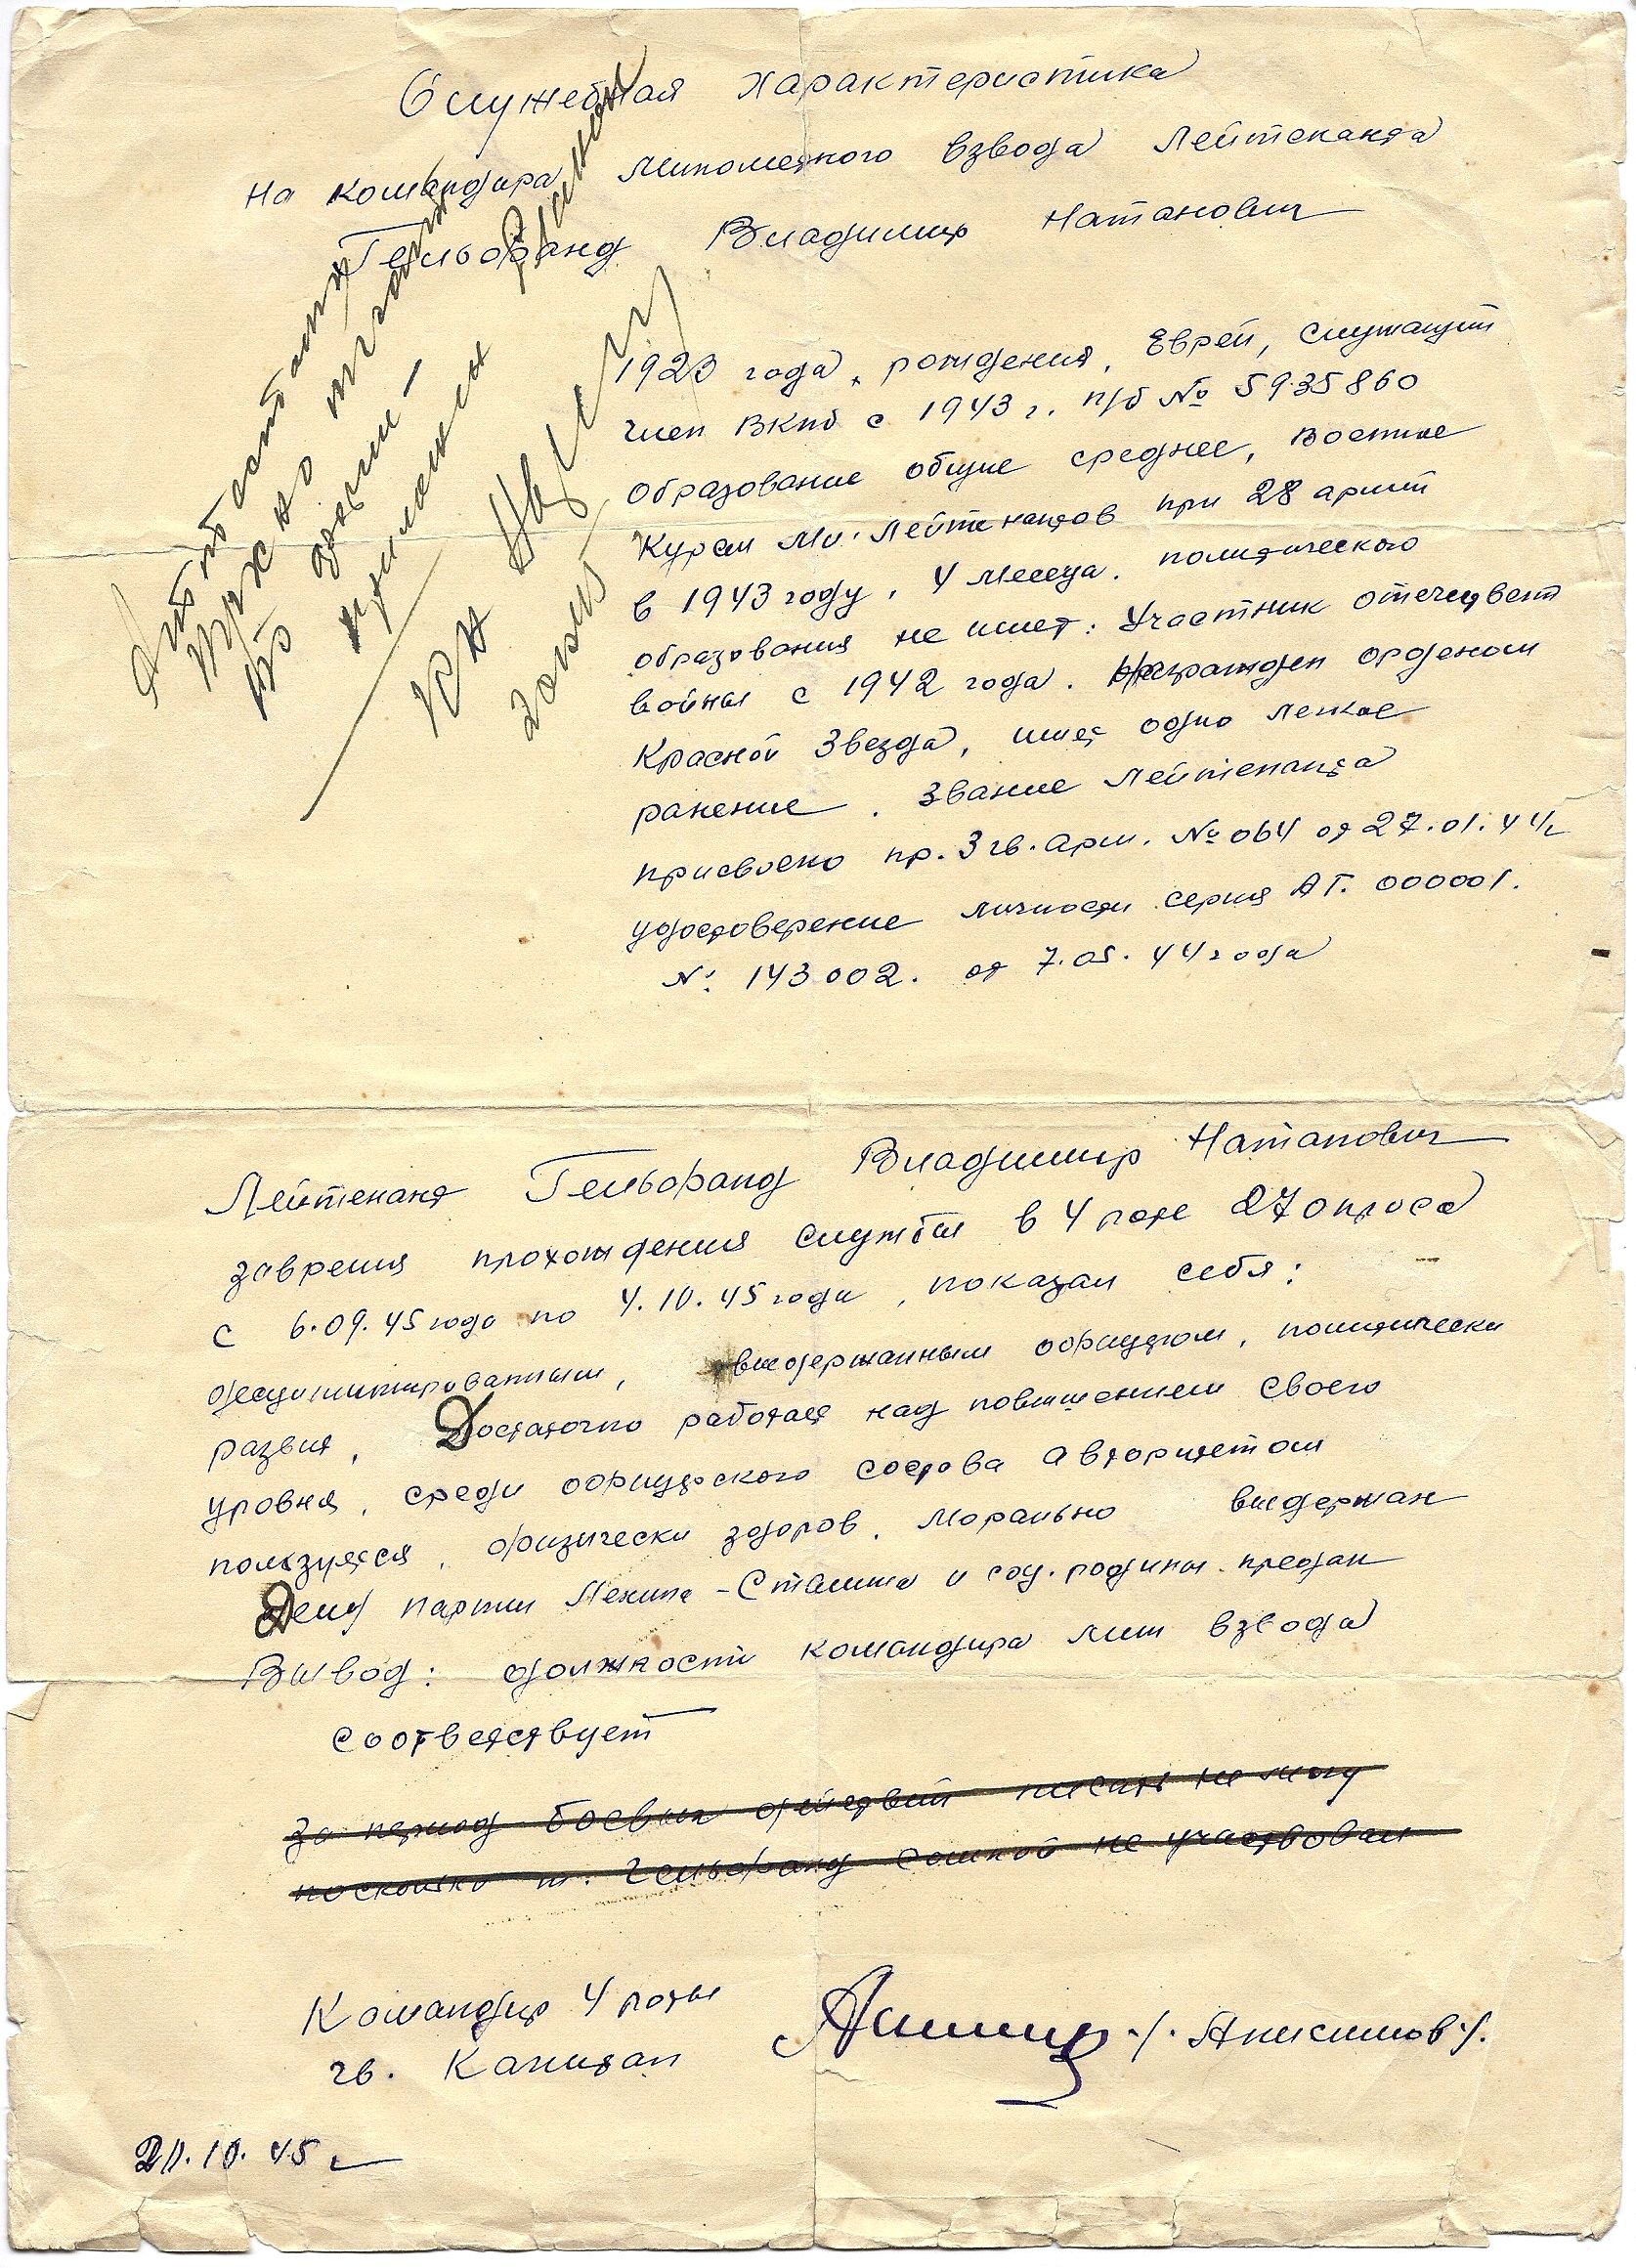 Служебная характеристика
на командира минометного взвода Лейтенанта
Гельфанд Владимир Натанович
1923 года, рождения, Еврей, служащий
член ВКПб с 1943 г. п/б № 5935860
образование общие среднее, военное
Курсы Мл. Лейтенантов при 28 армии
в 1943 году, 4 месеца. политического
образования не имеет. Участник отечествен
войны с 1942 года. Награжден орденом
Красной Звезда, имеет одно легкое
ранение. Звание Лейтенанта
присвоено пр. 3 гв. арм. № 064 от 27.01.44 г.
удостоверение личности серия АГ. 000001.
№: 143002. от 7.05.44 года
Лейтенант Гельфанд Владимир Натанович
завремя прохождения службы в 4 роте 27 опроса
с 6.09.45 года по 4.10.45 года, показал себя:
выдержанным офицером, политически
развит, Достаточно работает над повышением своего
уровня, среди офицерского состава авторитетом
пользуется, физически здоров. Морально выдержан
Делу партии Ленина-Сталина и соц. родины предан
Вывод: должности командира мин взвода
соответствует
за период боевых действий писать не могу
поскольку т. Гельфанд самной не участвовал
Командир 4 роты
гв. Капитан /. Анисимов /.
20.10.45 г.